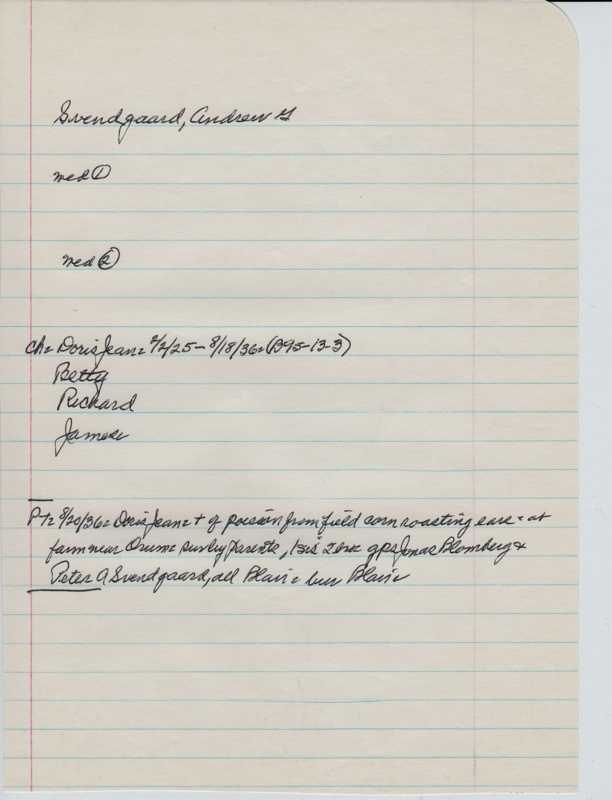 Svendgaard, Andrew G
med ①
med ②
Ch= Doris Jean= 2/2/25 - 8/18/36= (B95-13-3)
Betty
Richard
James=
PT= 8/20/36= Doris Jean= + of poison from field corn roasting ears = at
farm near Orum= surv by parents, 1 sis 2 bro= gps Jonas Blomberg &
Peter A Svendgaard, all Blair= bur Blair=